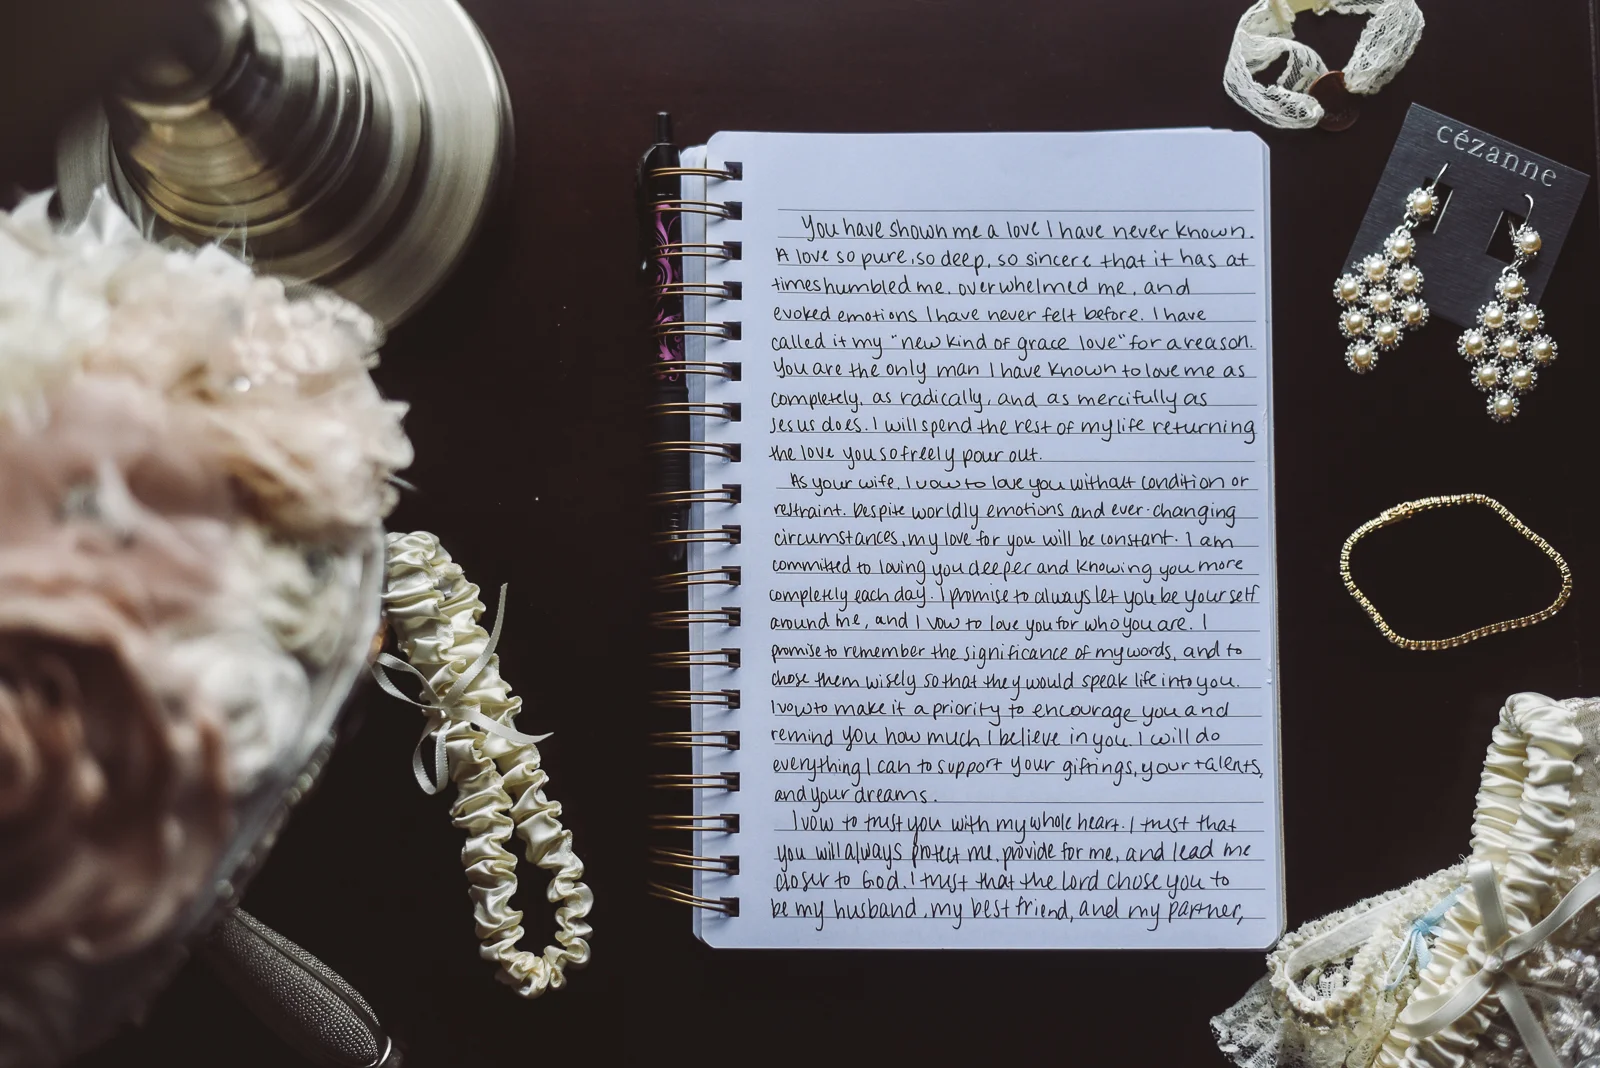 cézanne
You have shown me a love I have never known.
A love so pure, so deep, so sincere that it has at
times humbled me, overwhelmed me, and
evoked emotions I have never felt before. I have
called it my "new kind of grace love" for a reason.
You are the only man I have known to love me as
completely, as radically, and as mercifully as
Jesus does. I will spend the rest of my life returning
the love you so freely pour out.
As your wife, I vow to love you without condition or
restraint. Despite worldly emotions and ever-changing
circumstances, my love for you will be constant. I am
committed to loving you deeper and knowing you more
completely each day. I promise to always let you be yourself
around me, and I vow to love you for who you are. I
promise to remember the significance of my words, and to
chose them wisely so that they would speak life into you.
I vow to make it a priority to encourage you and
remind you how much I believe in you. I will do
everything I can to support your giftings, your talents,
and your dreams.
I vow to trust you with my whole heart. I trust that
you will always protect me, provide for me, and lead me
closer to God. I trust that the Lord chose you to
be my husband, my best friend, and my partner,